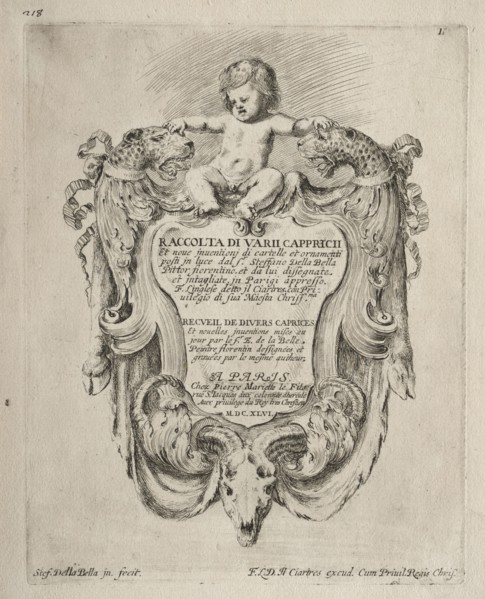 218
1.
RACCOLTA DI VARII CAPPRICII
Et noue inuentionj di cartelle et ornamenti
posti in luce dal s.r Steffano Della Bella
Pittor fiorentino. et da lui dissegnate
et intagliate, in Parigi appresso
F. L'anglese detto il Ciartres, con Pri=
uilegio di sua Maesta Christ.ma
RECVEIL DE DIVERS CAPRICES
Et nouelles inuentions mises au
jour par le s.r E. de la Belle
Peintre florentin dessignées et
grauées par le mesme autheur.
A PARIS
Chez Pierre Mariette le Filz
rue S. Iacques aux colonnes d'hercule
Auec priuilege du Roy tres Chrestien
M.DC.XLVI.
Stef. Della Bella jn. fecit.
F.L.D. Il Ciartres excud. Cum Priuil. Regis Chris.